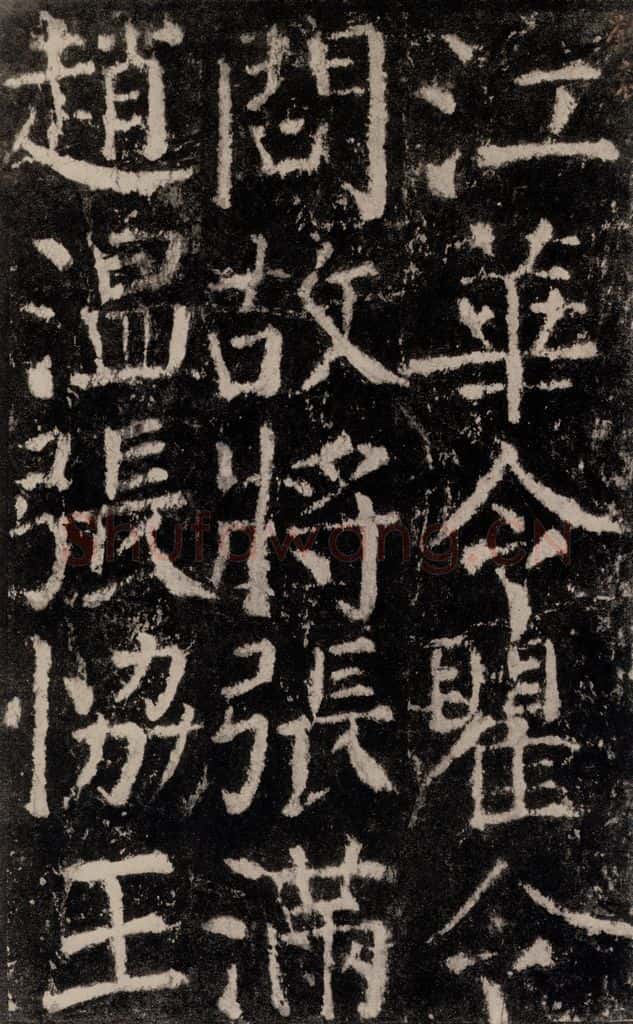 江華令瞿令
問故將張滿
趙温張恊王
Shufawang.CN